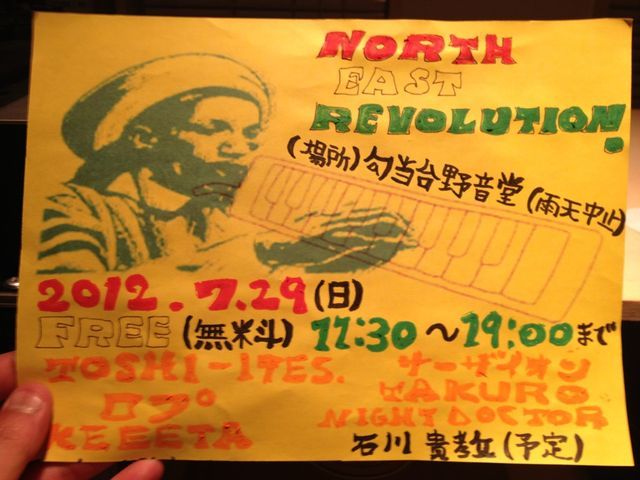 NORTH
EAST
REVOLUTION!
(場所)勾当台野音堂(雨天中止)
2012.7.29(日)
FREE(無料) 11:30～19:00まで
TOSHI-ITES.
ロプ
KEEETA
サーザイオン
TAKURO
NIGHT DOCTOR
石川 貴(予定)